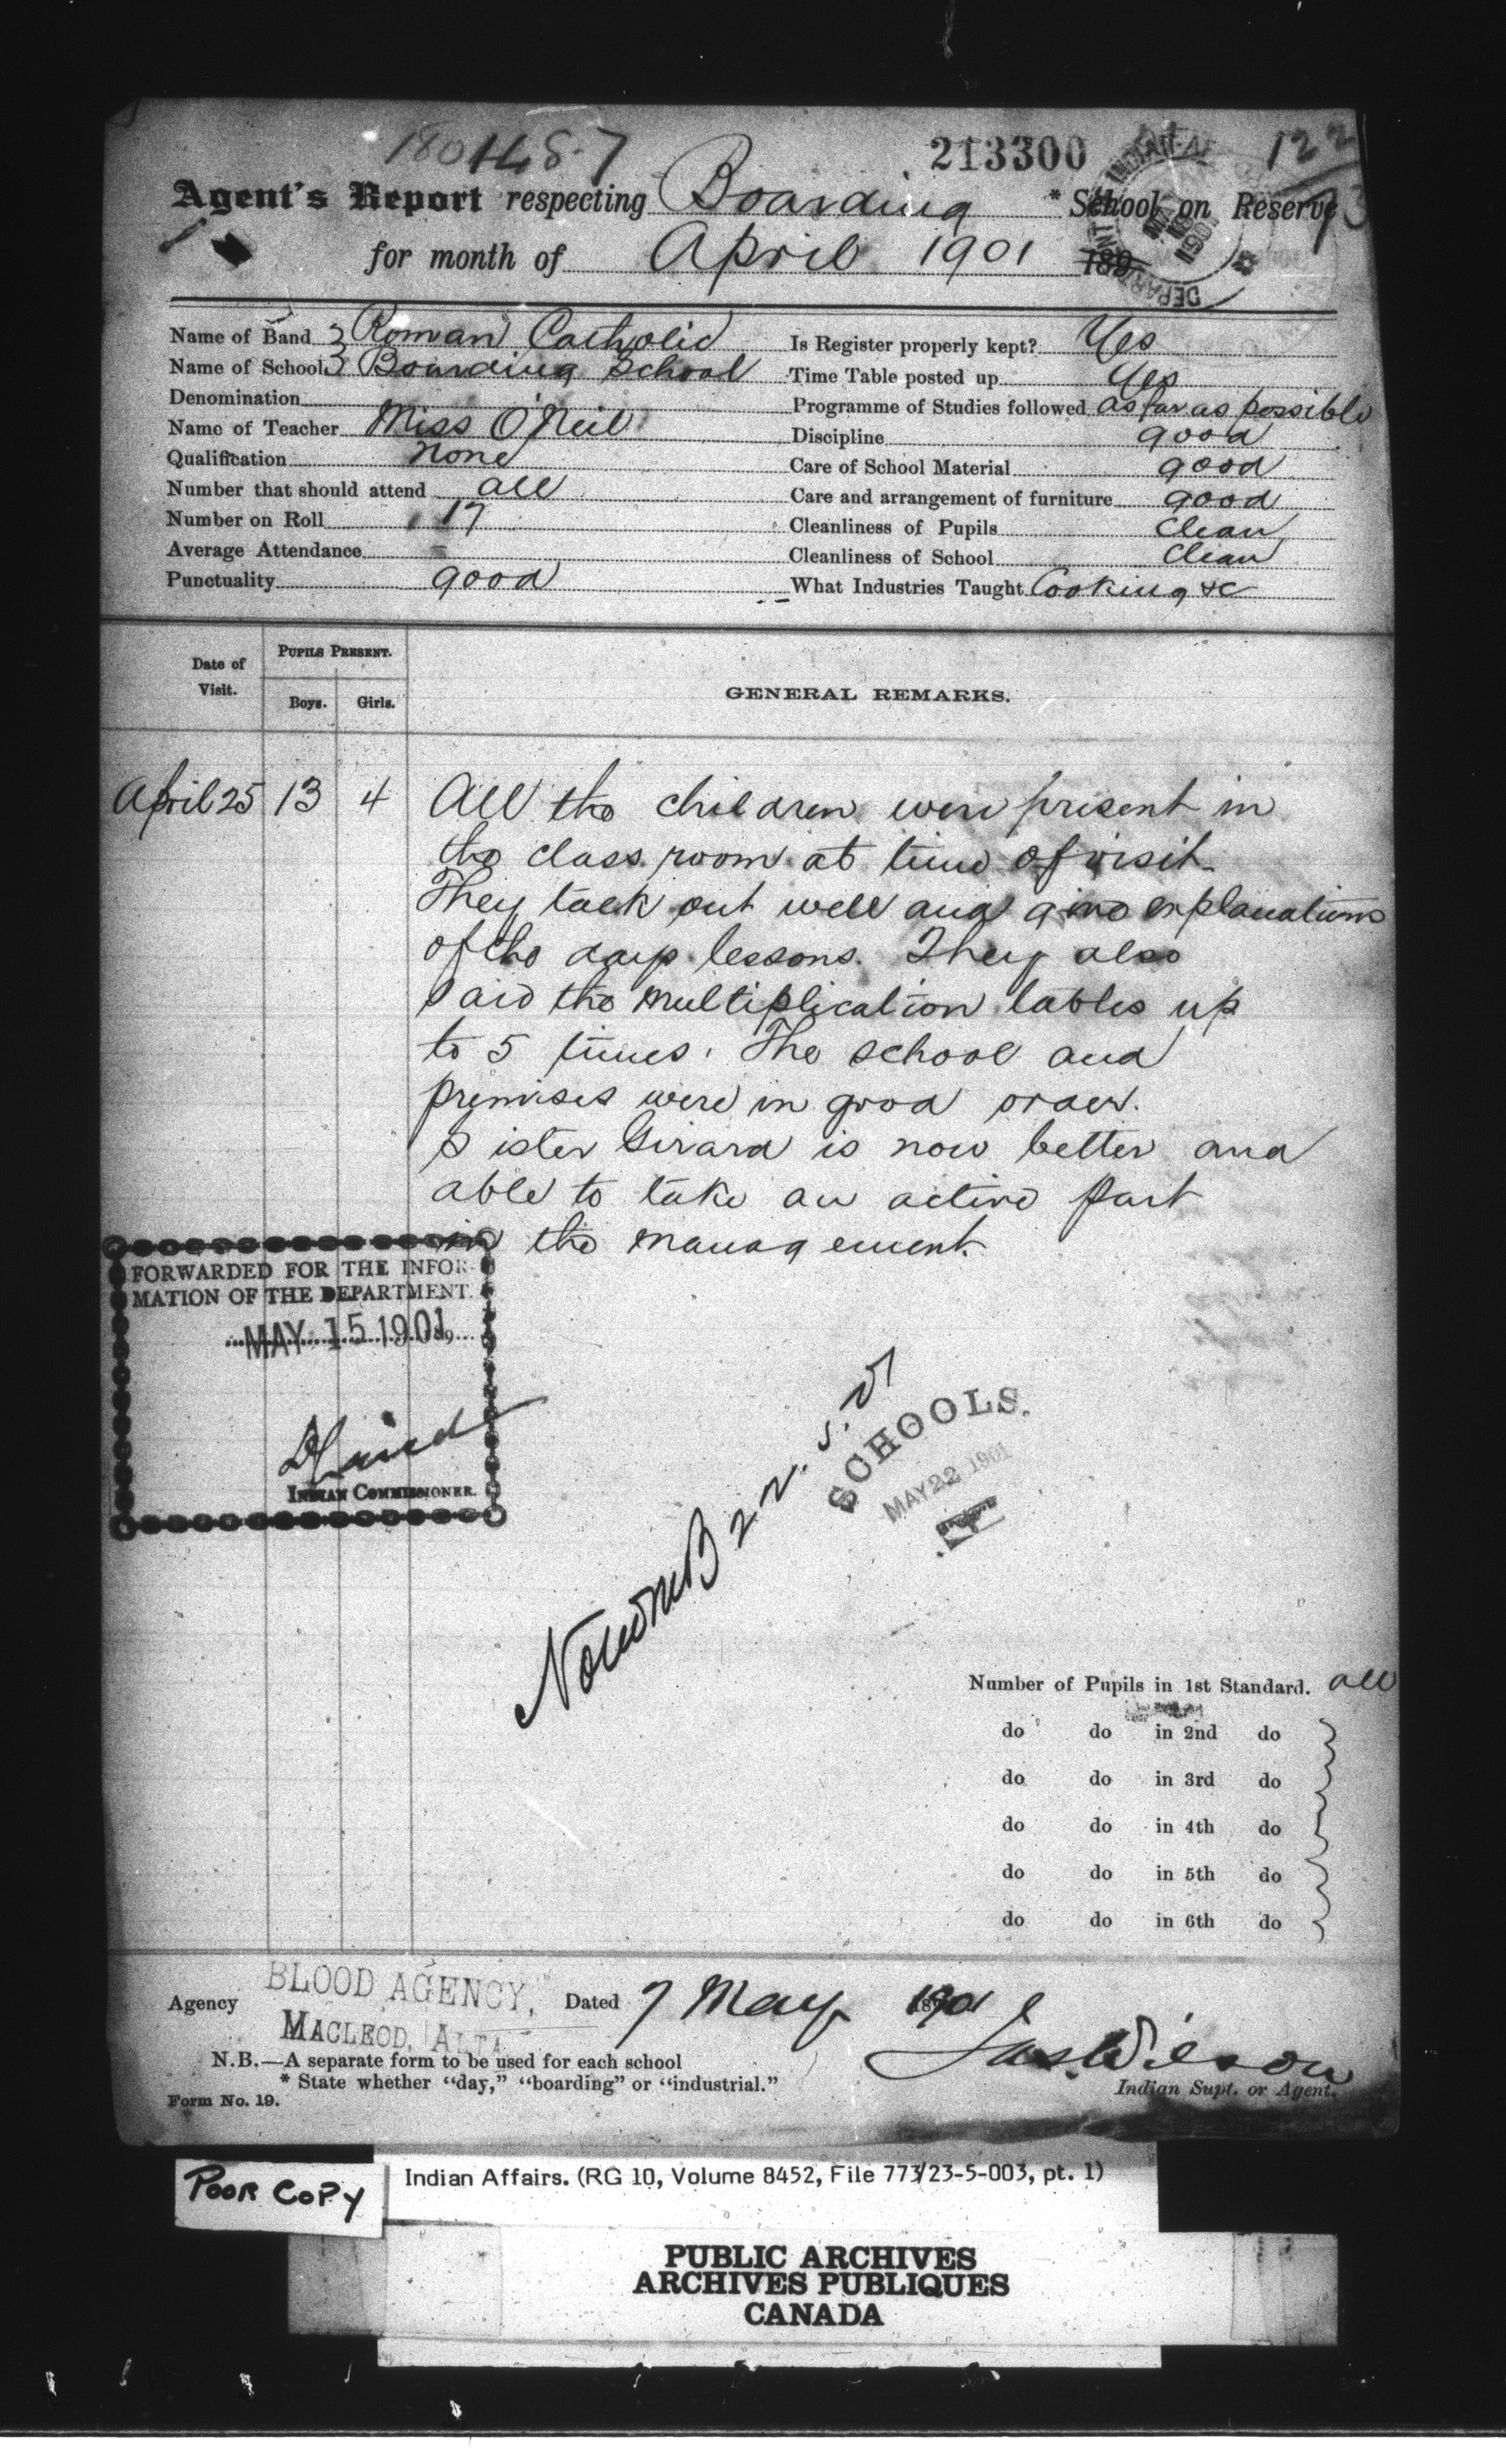 180148-7 213300 122
Agent's Report respecting Boarding * School on Reserve
for month of April 1901 189
DEPARTMENT INDIAN MAY 18 1901
Name of Band Roman Catholic
Name of School Boarding School
Denomination
Name of Teacher Miss O'Neil
Qualification none
Number that should attend all
Number on Roll 17
Average Attendance
Punctuality good
Is Register properly kept? Yes
Time Table posted up Yes
Programme of Studies followed as far as possible
Discipline good
Care of School Material good
Care and arrangement of furniture good
Cleanliness of Pupils clean
Cleanliness of School clean
What Industries Taught Cooking &c
Date of Visit.
PUPILS PRESENT.
Boys. Girls.
GENERAL REMARKS.
April 25 13 4 All the children were present in
the class room at time of visit.
They talk out well and give explanations
of the days lessons. They also
said the multiplication tables up
to 5 times. The school and
premises were in good order.
Sister Girard is now better and
able to take an active part
in the management.
FORWARDED FOR THE INFOR-
MATION OF THE DEPARTMENT.
MAY 15 1901 189
D Laird
INDIAN COMMISSIONER.
SCHOOLS.
MAY 22 1901
Number of Pupils in 1st Standard. all
do do in 2nd do
do do in 3rd do
do do in 4th do
do do in 5th do
do do in 6th do
Agency BLOOD AGENCY, Dated 7 May 1901
MACLEOD, ALTA
Jas Wilson
Indian Supt. or Agent.
N.B.—A separate form to be used for each school
* State whether "day," "boarding" or "industrial."
Form No. 19.
POOR COPY
Indian Affairs. (RG 10, Volume 8452, File 773/23-5-003, pt. 1)
PUBLIC ARCHIVES
ARCHIVES PUBLIQUES
CANADA